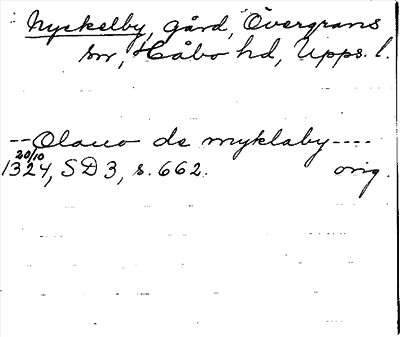 Nyckelby, gård, Övergrans
sn, Håbo hd, Upps. l.
-- Olauo de myklaby ----
20/10
1324, SD 3, s. 662. orig.